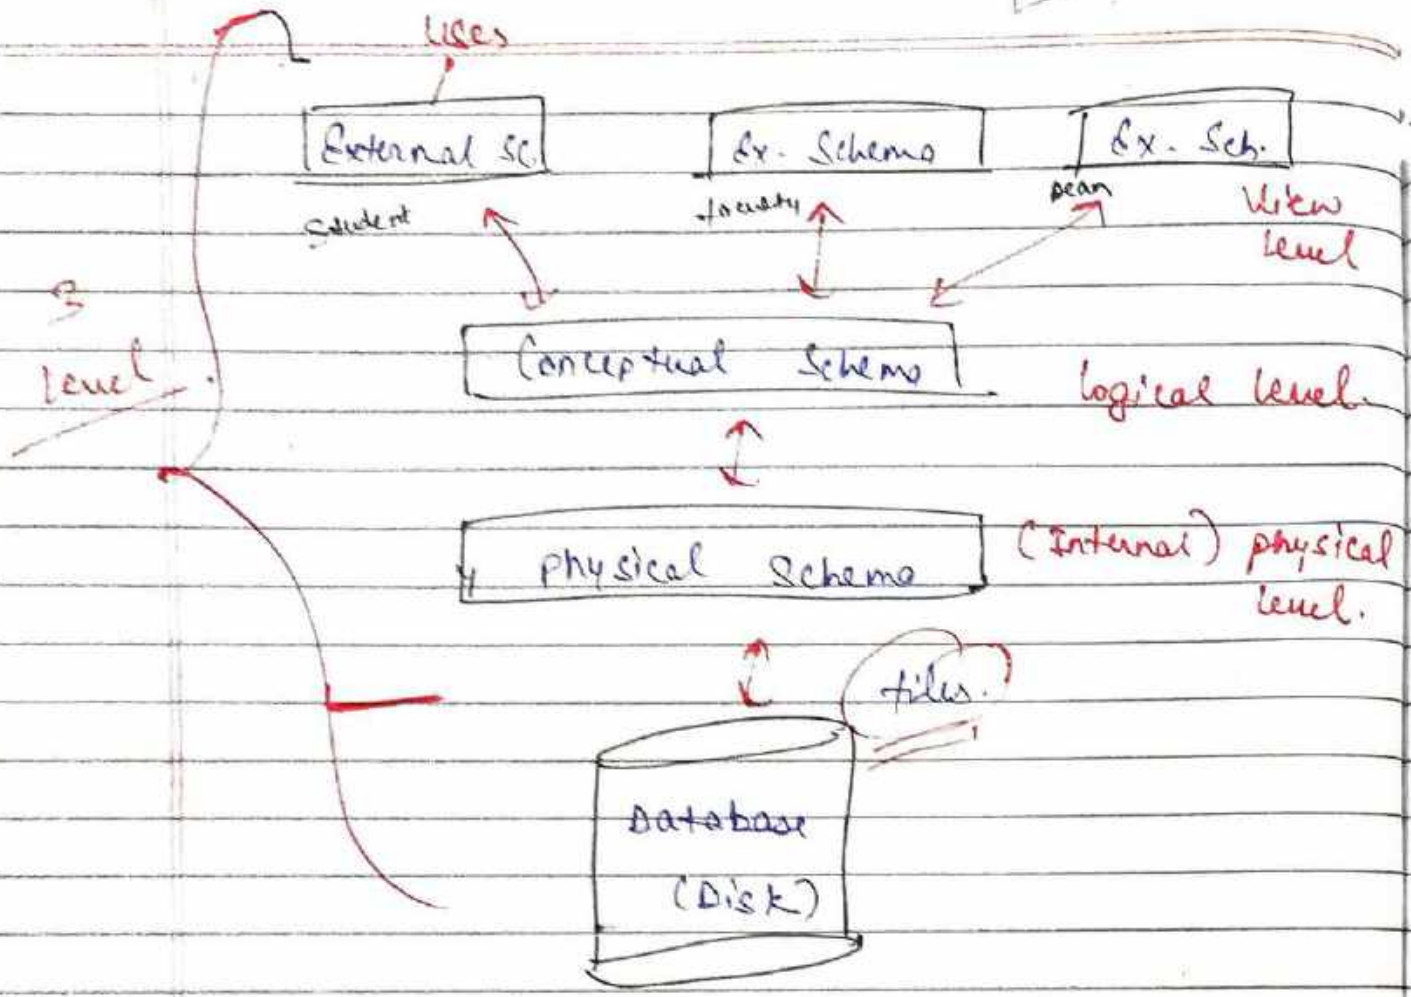 Uses
External Sc.
Ex. Schema
Ex. Sch.
Student
faculty
Dean
View
level
3
level
Conceptual Schema
logical level.
physical Schema
(Internal) physical
level.
files.
Database
(Disk)